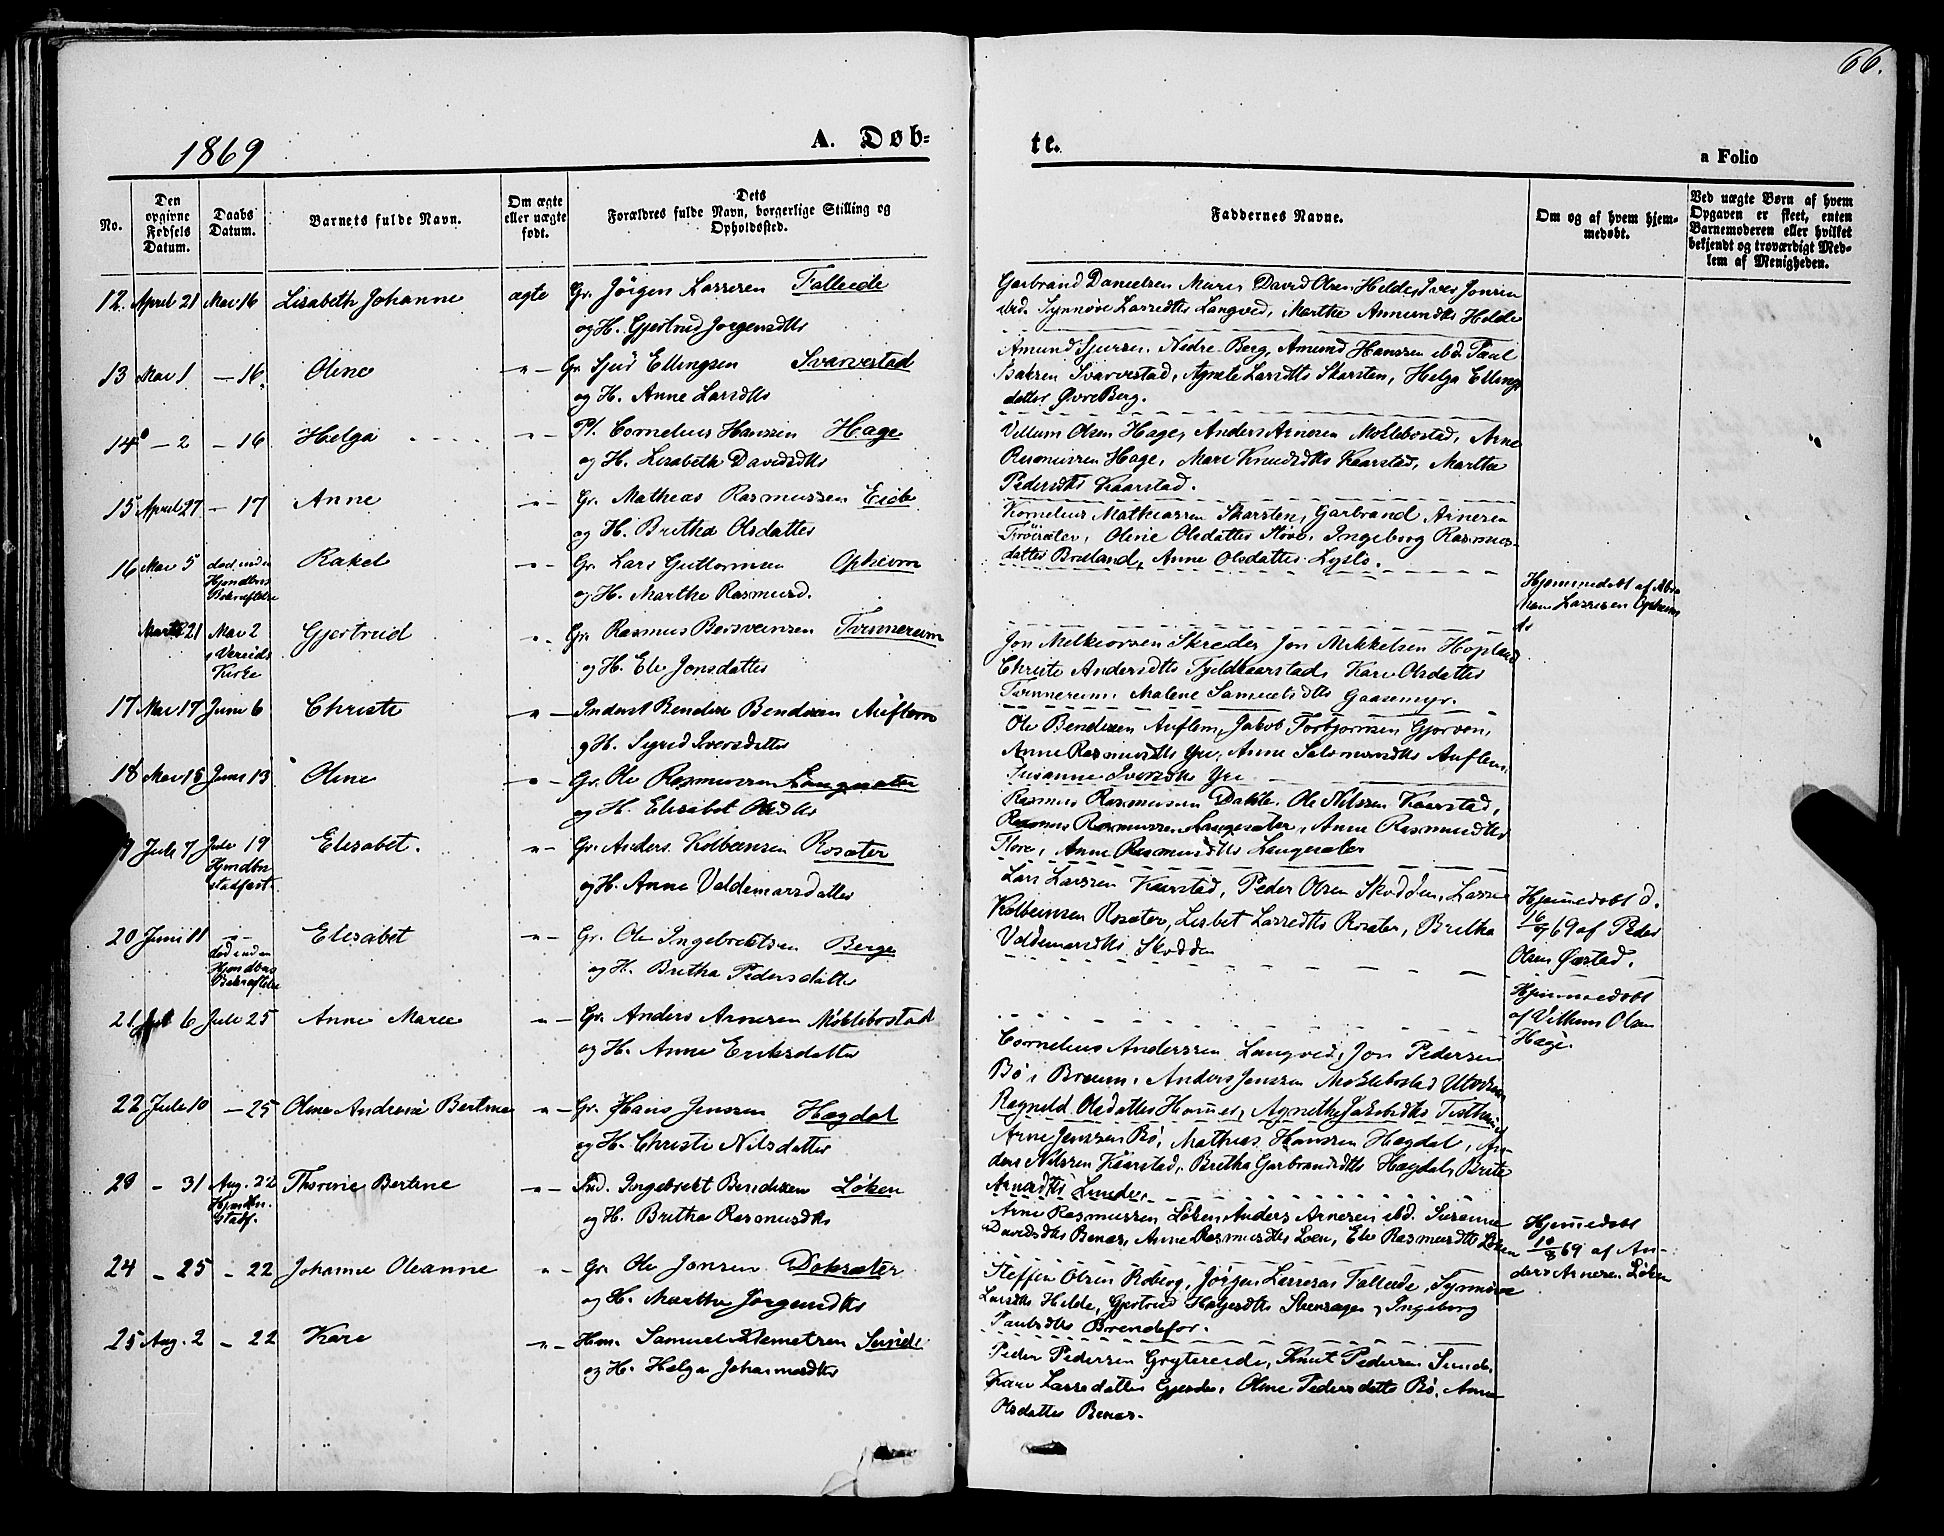 66.
1869
A. Døb=
te.
a Folio
No.
Den opgivne Fødsels Datum.
Daabs Datum.
Barnets fulde Navn.
Om ægte eller uægte født.
Dets Forældres fulde Navn, borgerlige Stilling og Opholdssted.
Faddernes Navne.
Om og af hvem hjemmedøbt.
Ved uægte Børn af hvem Opgaven er skeet, enten Barnemoderen eller hvilket bekjendt og troværdigt Medlem af Menigheden.
12 April 21 Mai 16 Lisabeth Johanne ægte Gr. Jørgen Larsen Tolleide
og H. Gjertrud Jorgensdtr
Garbrand Danielsen David Olsen Helde, Iver Jonsen
ibd. Synnøve Larsdtr Langved, Marthe Helde
13 Mai 1 - 16. Oline - " - Gr. Ellingsen Svarvestad
og H. Anne Larsdtr
Amund Nedre Berg, Amund Hanssen ibd.
Svarvestad, Agnete Larsdtr Skarsten, Helga Ellings
datter Øvre Berg.
14 - 2 - 16 Helga - " - Pl. Cornelius Hanssen Hage
og H. Lisabeth Davidsdtr
Villum Olsen Hage, Anders Arnesen Moklebostad, Arne
Rasmussen Hage, Mari Knudsdtr Kaarstad, Marthe
Pedersdtr Kaarstad.
15 April 27 - 17 Anne - " - Gr. Mathias Rasmussen Eide
og H. Brithe Olsdatter
Kornelius Mathiassen Skarsten, Garbrand Arnesen
Oline Olsdatter Ingeborg Rasmus-
datter Anne Olsdatter
16 Mai 5 død inden Hjmdbns Bekræftelse Rakel - " - Gr. Lars Guttormsen Opheim
og H. Marthe Rasmusd.
Hjemmedøbt af
Larssen Opheim
Marts 21 Mai 2 i Vereids Kirke Gjertrud " - Gr. Rasmus Tvinnereim
og H. Eli Jonsdatter
Jon Skrede, Jon Mikkelsen Hopland
Christi Andersdtr Kari Olsdatter
Tvinnereim, Malene Samuelsdtr Gaasemyr.
17 Mai 17 Juni 6 Christi - " - Inderst Bendix Bendixen Auflem
og H. Sigrid Iversdatter
Ole Bendixen Auflem, Jakob Torbjørnsen Gjørven,
Anne Rasmusdtr Yri, Anne Auflem,
Susanne Iversdtr Yri
18 Mai 15 Juni 13 Oline - " - Gr. Ole Rasmussen Langesæter
og H. Elisabet Olsdtr
Rasmus Rasmussen Ole Nilssen Kaarstad,
Rasmus Rasmussen Langesæter, Anne Rasmusdtr
Anne Rasmusdtr Langesæter
Juli 7 Juli 19 Hjmdbn stadfæst. Elisabet. " - Gr. Anders Kolbeinsen Rosæter
og H. Anne Valdemarsdatter
Lars Larssen Kaarstad, Peder Olsen Skodden, Lasse
Kolbeinsen Rosæter, Lisbet Larsdtr Rosæter, Britha
Valdemarsdtr Skodden
Hjemmedøbt d.
69 af Peder
Olsen
20 Juni 11 død inden Hjmdbns Bekræftelse Elisabet " - Gr. Ole Ingebrektsen Berge
og H. Britha Pedersdatter
Hjemmedøbt
af Villum Olsen
Hage.
21 Juli 6 Juli 25 Anne Marie " - Gr. Anders Arnesen Moklebostad
og H. Anne Eriksdatter
Cornelius Anderssen Langved, Jon Pedersen
Bø i Anders Jenssen Moklebostad
Ragnild Olsdatter Agnethe Jakobsdtr
22 Juli 10 - 25 Oline Andrine Bertine " - Gr. Hans Jenssen Hægdal
og H. Christi Nilsdatter
Arne Jenssen Bø, Mathias Hanssen Hægdal, An-
ders Nilssen Kaarstad, Britha Garbrandsdtr Hægdal, Brite
Arnesdtr Lunde.
23 - 31 Aug. 22 Hjmdbn. stadf. Thorine Bertine - " - Ind. Ingebrekt Bendixen Løken
og H. Britha Rasmusdtr
Arne Rasmussen Løken, Anders Arnesen ibd. Susanne
Davidsdtr Benas, Anne Rasmusdtr Loen, Eli Rasmusdtr Løken
Hjemmedøbt
10/8 69 af An-
ders Arnesen Løken
24 - 25 - 22 Johanne Oleanne " - Gr. Ole Jonsen Dokseter
og H. Marthe Jørgensdtr
Steffen Olsen Roberg, Jørgen Larssen Tolleide, Synnøve
Larsdtr Helde, Gjertrud Ingeborg
Paulsdtr Brendefor.
25 Aug. 2 - 22 Kari - " - Hm. Samuel Klemetsen Sunde
og H. Helga Johannesdtr
Peder Pedersen Grytereide, Knut Pedersen Sunde,
Kari Larsdatter Gjerde, Oline Pedersdatter Bø, Anne
Olsdatter Benas.